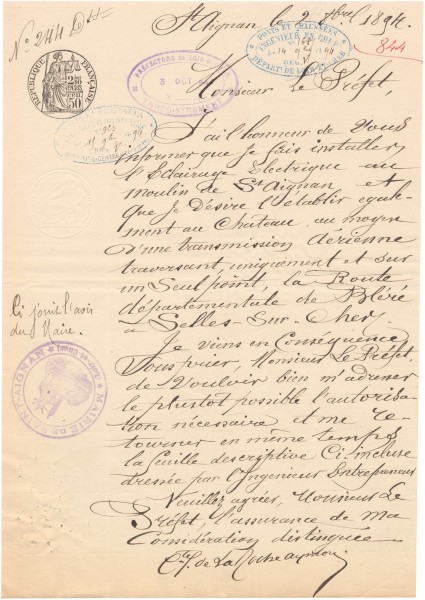 N° 244 Dt
St Aignan le 2 8bre 1894.
844
PONTS ET CHAUSSÉES
INGÉNIEUR EN CHEF
DÉPART. DE LOIR-ET-CHER
PRÉFECTURE DE LOIR
3 OCT
ENREGISTREMENT
RÉPUBLIQUE FRANÇAISE
50
Monsieur Le Préfet,
J'ai l'honneur de Vous
informer que je fais installer
l'Eclairage Electrique au
moulin de St Aignan et
que je Désire l'établir égale-
ment au Château au moyen
d'une transmission aérienne
traversant, uniquement et sur
un Seul point, la Route
départementale de Bléré
à Selles-Sur-Cher.
Ci joint l'avis
du Maire.
MAIRIE DE SAINT-AIGNAN
Je viens en Conséquence
Vous prier, Monsieur Le Préfet
de Vouloir bien m'adresser
le plustot possible l'autorisa-
tion nécessaire et me re-
tourner en même temps
la feuille descriptive Ci-incluse
dressée par l'Ingenieur Entrepreneur
Veuillez agréer, Monsieur Le
Préfet, l'assurance de ma
Considération distinguée
de La Rocheaymon